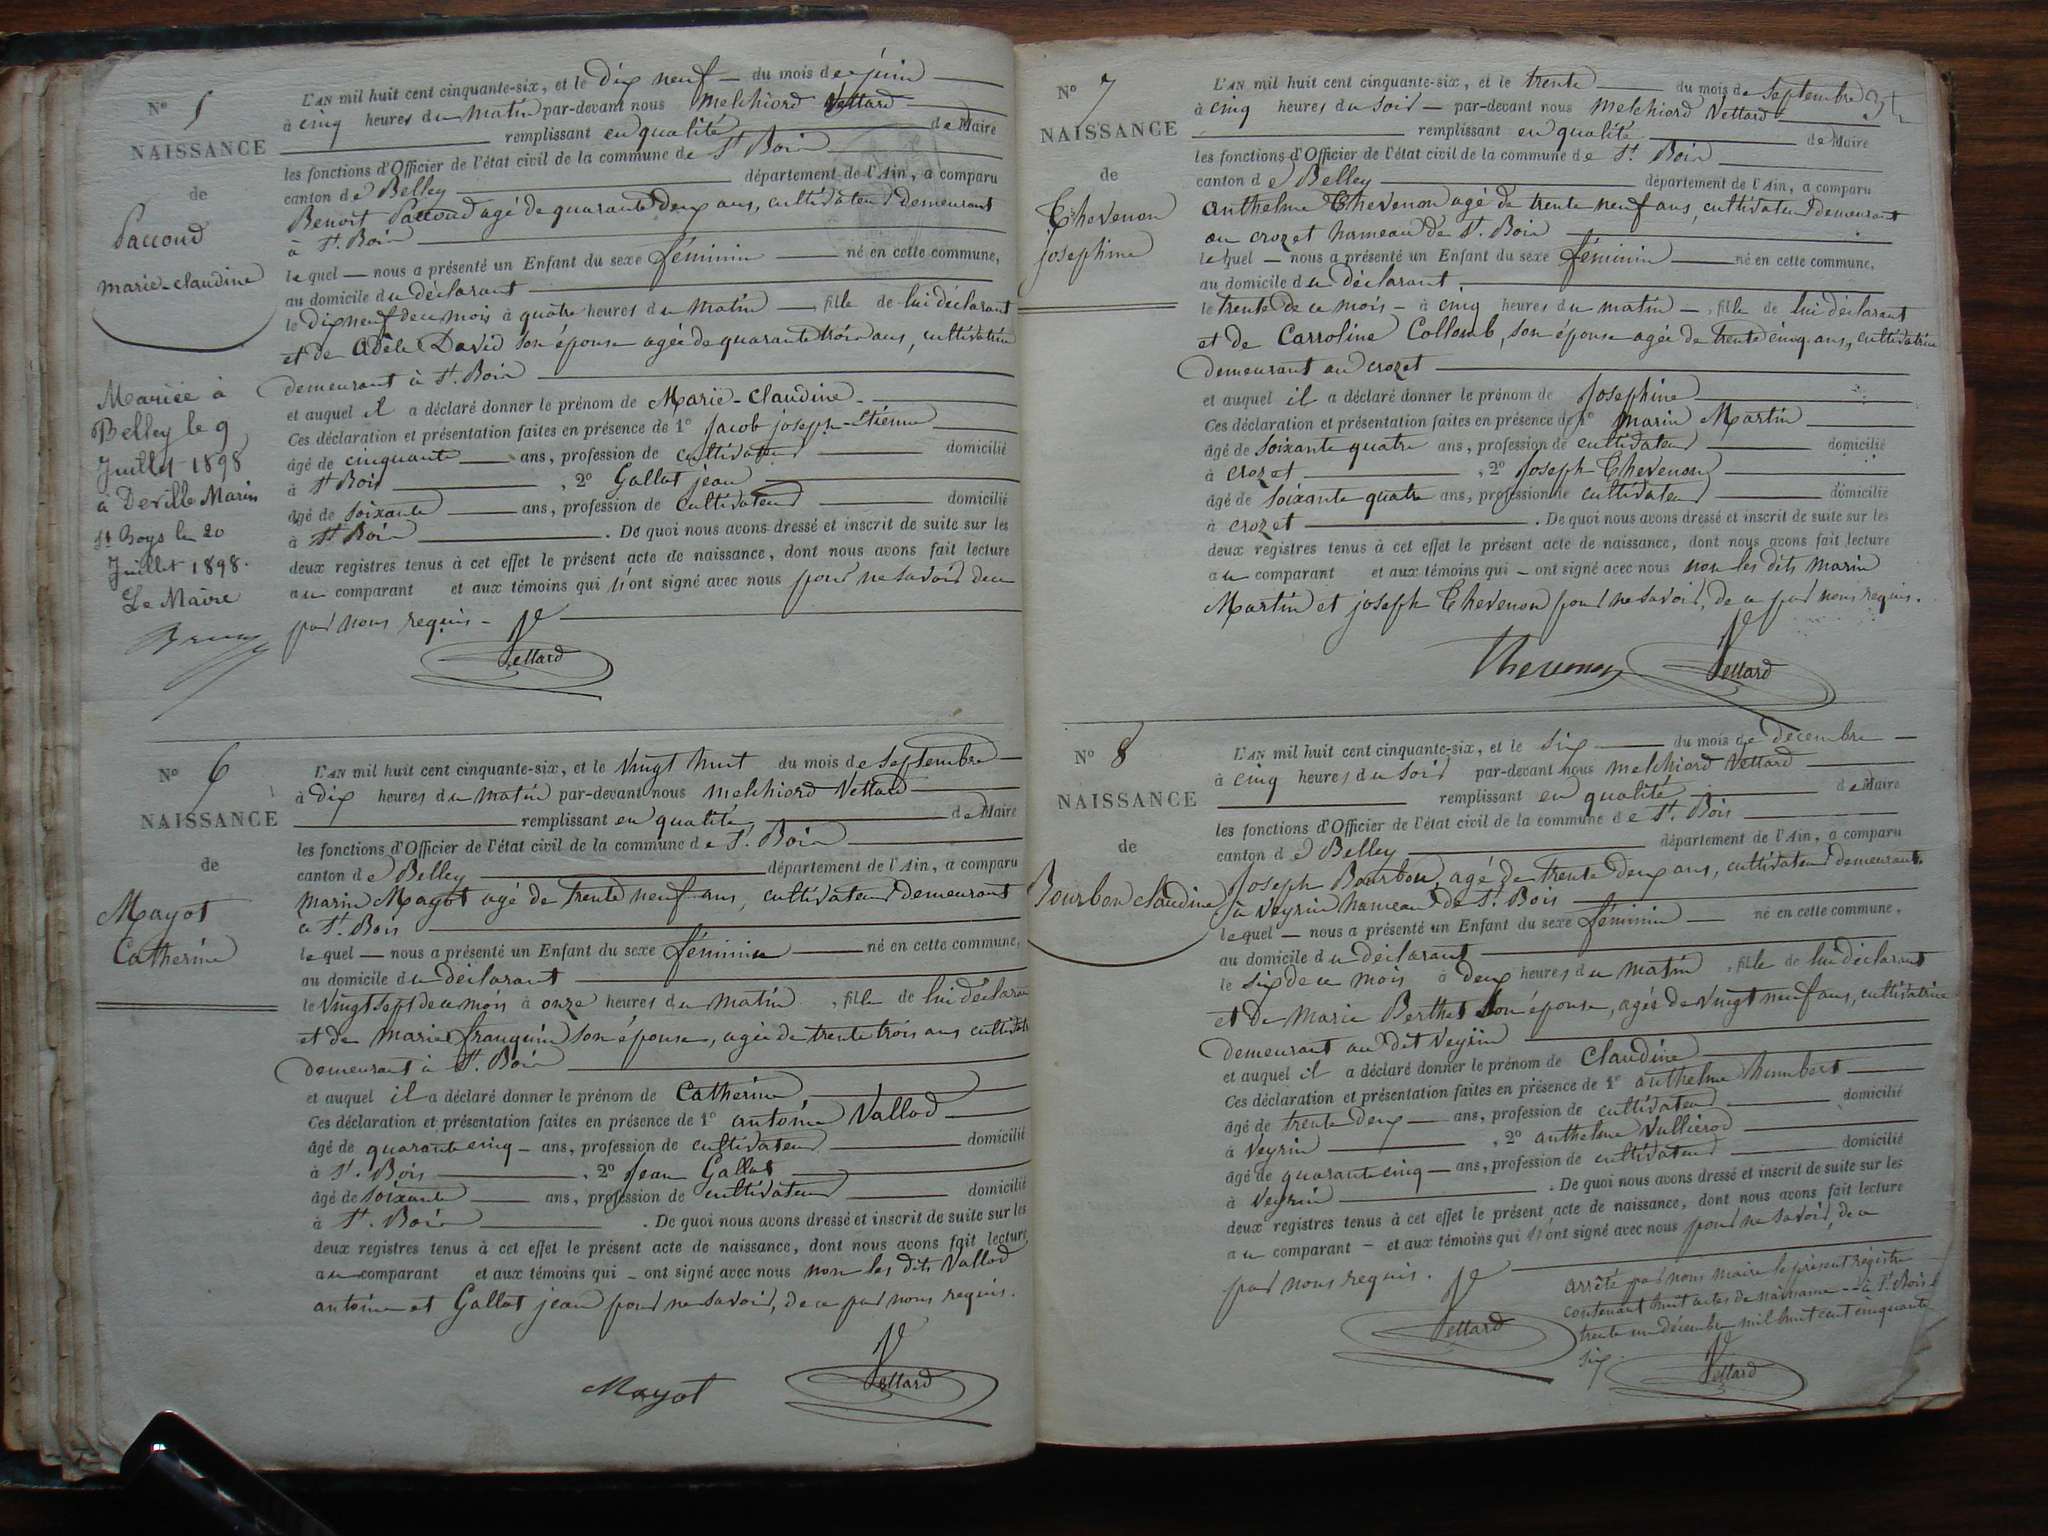 N° 5
NAISSANCE
de
Paccoud
marie-claudine
Mariée à
Belley le 9
Juillet 1898
à Deville Marin
St Boys le 20
Juillet 1898.
Le Maire
L'AN mil huit cent cinquante-six, et le dix neuf du mois de juin
à cinq heures du matin par-devant nous melchiord Vettard
remplissant en qualité de Maire
les fonctions d'Officier de l'état civil de la commune de St Bois
canton de Belley département de l'Ain, a comparu
Benoit Paccoud agé de quarante deux ans, cultivateur demeurant
à St. Bois
lequel nous a présenté un Enfant du sexe féminin né en cette commune,
au domicile du déclarant
le dix neuf de ce mois à quatre heures du matin, fille de lui déclarant
et de Adèle David son épouse agée de quarante trois ans, cultivatrice
demeurant à St. Bois
et auquel il a déclaré donner le prénom de Marie-Claudine
Ces déclaration et présentation faites en présence de 1° Jacob joseph-Etienne
âgé de cinquante ans, profession de cultivateur domicilié
à St Bois, 2° Gallat jean
âgé de soixante ans, profession de cultivateur domicilié
à St Bois. De quoi nous avons dressé et inscrit de suite sur les
deux registres tenus à cet effet le présent acte de naissance, dont nous avons fait lecture
au comparant et aux témoins qui n'ont signé avec nous pour ne savoir de ce
par nous requis.
Vettard
N° 6
NAISSANCE
de
Mayot
Catherine
L'AN mil huit cent cinquante-six, et le vingt huit du mois de septembre
à dix heures du matin par-devant nous melchiord Vettard
remplissant en qualité de Maire
les fonctions d'Officier de l'état civil de la commune de St. Bois
canton de Belley département de l'Ain, a comparu
marin Mayot agé de trente neuf ans, cultivateur demeurant
à St. Bois
lequel nous a présenté un Enfant du sexe féminin né en cette commune,
au domicile du déclarant
le vingt sept de ce mois à onze heures du matin, fille de lui déclarant
et de marie franquin son épouse, agée de trente trois ans cultivat
demeurant à St. Bois
et auquel il a déclaré donner le prénom de Catherine
Ces déclaration et présentation faites en présence de 1° antoine Vallod
âgé de quarante cinq ans, profession de cultivateur domicilié
à St. Bois, 2° Jean Gallat
âgé de soixante ans, profession de cultivateur domicilié
à St. Bois. De quoi nous avons dressé et inscrit de suite sur les
deux registres tenus à cet effet le présent acte de naissance, dont nous avons fait lecture
au comparant et aux témoins qui ont signé avec nous non les dits Vallod
antoine et Gallat jean pour ne savoir, de ce par nous requis.
Mayot Vettard
N° 7
NAISSANCE
de
Thevenon
josephine
L'AN mil huit cent cinquante-six, et le trente du mois de septembre
à cinq heures du soir par-devant nous melchiord Vettard
remplissant en qualité de Maire
les fonctions d'Officier de l'état civil de la commune de St. Bois
canton de Belley département de l'Ain, a comparu
anthelme Thevenon agé de trente neuf ans, cultivateur demeurant
au crozet hameau de St. Bois
lequel nous a présenté un Enfant du sexe féminin né en cette commune,
au domicile du déclarant.
le trente de ce mois à cinq heures du matin, fille de lui déclarant
et de Carroline Collomb, son épouse agée de trente cinq ans, cultivatrice
demeurant au crozet
et auquel il a déclaré donner le prénom de Josephine
Ces déclaration et présentation faites en présence de 1° marin Martin
âgé de soixante quatre ans, profession de cultivateur domicilié
à crozet, 2° joseph Thevenon
âgé de soixante quatre ans, profession de cultivateur domicilié
à crozet. De quoi nous avons dressé et inscrit de suite sur les
deux registres tenus à cet effet le présent acte de naissance, dont nous avons fait lecture
au comparant et aux témoins qui ont signé avec nous non les dits marin
Martin et joseph Thevenon pour ne savoir, de ce par nous requis.
Thevenon Vettard
N° 8
NAISSANCE
de
Bourbon claudine
L'AN mil huit cent cinquante-six, et le six du mois de décembre
à cinq heures du soir par-devant nous melchiord Vettard
remplissant en qualité de Maire
les fonctions d'Officier de l'état civil de la commune de St. Bois
canton de Belley département de l'Ain, a comparu
Joseph Bourbon, agé de trente deux ans, cultivateur demeurant
à veyrin hameau de St. Bois
lequel nous a présenté un Enfant du sexe féminin né en cette commune,
au domicile du déclarant
le six de ce mois à deux heures du matin, fille de lui déclarant
et de Marie Berthet son épouse, agée de vingt neuf ans, cultivatrice
demeurant au dit veyrin
et auquel il a déclaré donner le prénom de Claudine
Ces déclaration et présentation faites en présence de 1° anthelme humbert
âgé de trente deux ans, profession de cultivateur domicilié
à veyrin, 2° anthelme Vullierod
âgé de quarante cinq ans, profession de cultivateur domicilié
à veyrin. De quoi nous avons dressé et inscrit de suite sur les
deux registres tenus à cet effet le présent acte de naissance, dont nous avons fait lecture
au comparant et aux témoins qui n'ont signé avec nous pour ne savoir, de ce
par nous requis.
Vettard
arrêté par nous maire le présent régistre
contenant huit actes de naissance à St. Bois le
trente un décembre mil huit cent cinquante
six.
Vettard